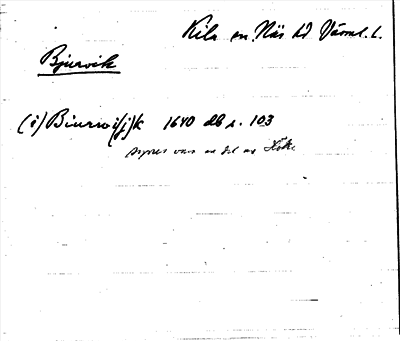 Kila sn Näs hd Värml. l.
Bjurvik
(i) Biurwi(j)k 1640 db s. 103
synes vara en del av Hök